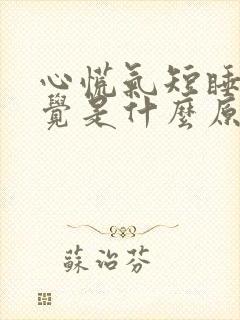 心慌氣短睡
覺是什麼原
蘇治芬